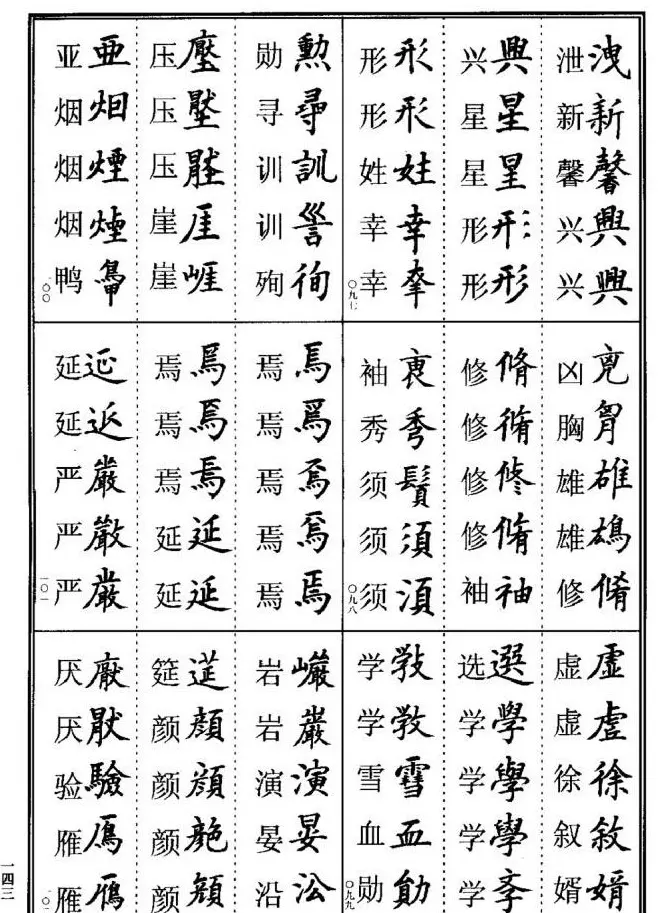 泄 洩
新 新
馨 馨
兴 興
兴 興
兴 興
星 星
星 星
形 形
形 形
形 形
形 形
姓 姓
幸 幸
幸
〇九七
凶
胸 胷
雄 雄
雄 鴆
修 脩
修 脩
修 脩
修 修
修 脩
袖 袖
袖
秀 秀
须 鬚
须 須
须 湏
〇九八
虚 虛
虚 虚
徐 徐
叙 敘
婿 婿
选 選
学 學
学 學
学 學
学 斈
学
学 斆
雪 雪
血 血
勋 勛
〇九九
勋 勳
寻 尋
训 訓
训
殉 徇
压 壓
压 壓
压
崖 厓
崖 崕
亚 亞
烟 烟
烟 煙
烟 煙
鸭
一〇〇
焉 焉
焉 焉
焉 焉
焉 焉
焉 焉
焉 焉
焉 焉
焉 焉
延 延
延 延
延 延
延
严 嚴
严 嚴
严 嚴
一〇一
岩 巖
岩 巖
演 演
晏 晏
沿 沿
筵 筵
颜 顔
颜 顔
颜
颜 顔
厌 厭
厌 猒
验 驗
雁 鴈
雁 鴈
一四三